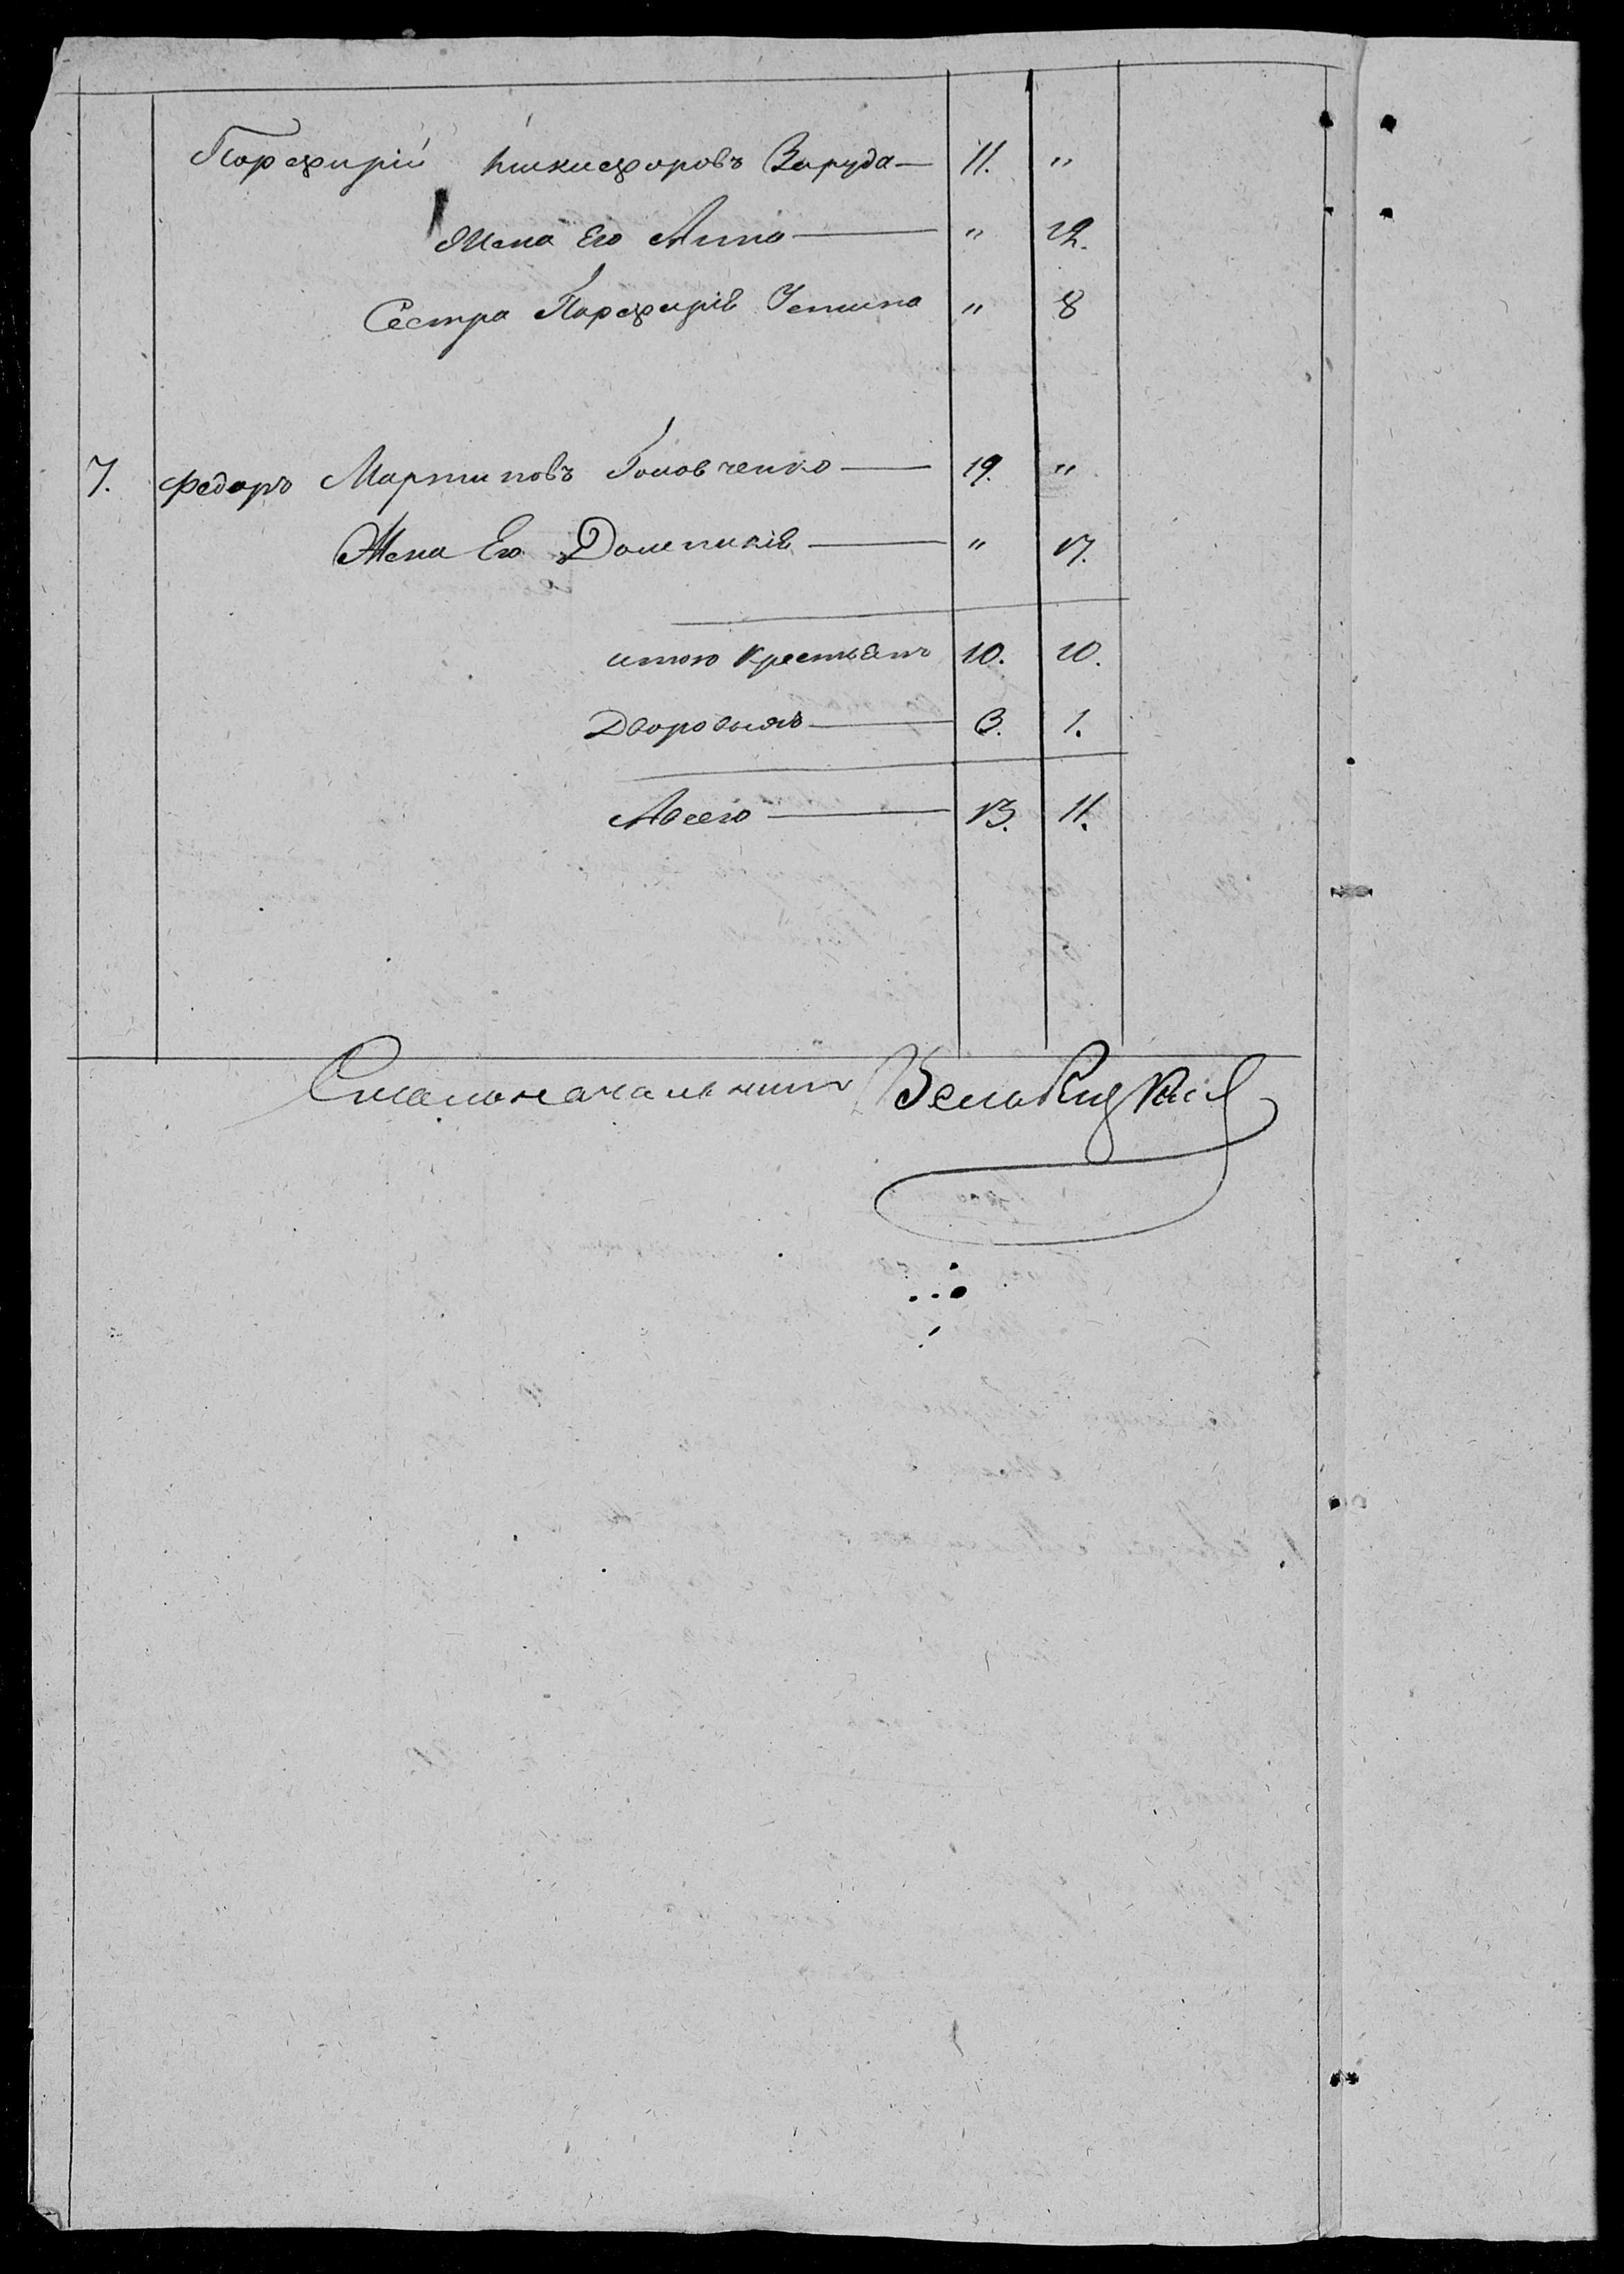 Порфирій Никифоровъ Заруда — 11. "
Жена Его Анна — " 22.
Сестра Порфирія Устина " 8
7. Федоръ Мартиновъ Головченко — 19. "
Жена Его Домникія — " 17.
итого крестьянъ 10. 10.
Дворовыхъ — 3. 1.
А всего — 13. 11.
Столоначальникъ